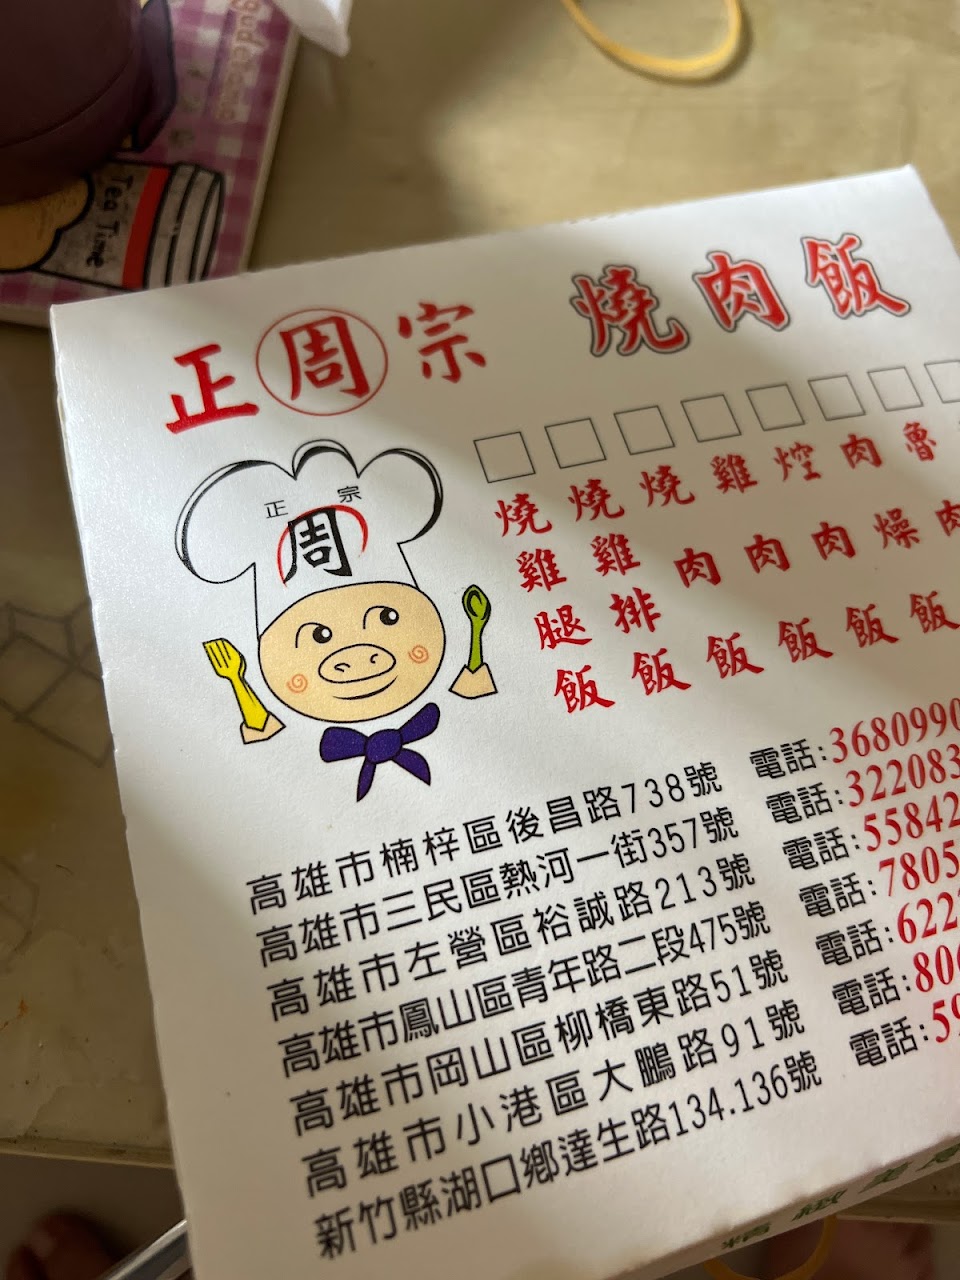 Tea Time
正周宗 燒肉飯
正周宗
燒雞腿飯
燒雞排飯
燒肉飯
雞肉飯
焢肉飯
肉燥飯
魯肉
高雄市楠梓區後昌路738號 電話:3680990
高雄市三民區熱河一街357號 電話:322083
高雄市左營區裕誠路213號 電話:55842
高雄市鳳山區青年路二段475號 電話:7805
高雄市岡山區柳橋東路51號 電話:622
高雄市小港區大鵬路91號 電話:80
新竹縣湖口鄉達生路134.136號 電話:59